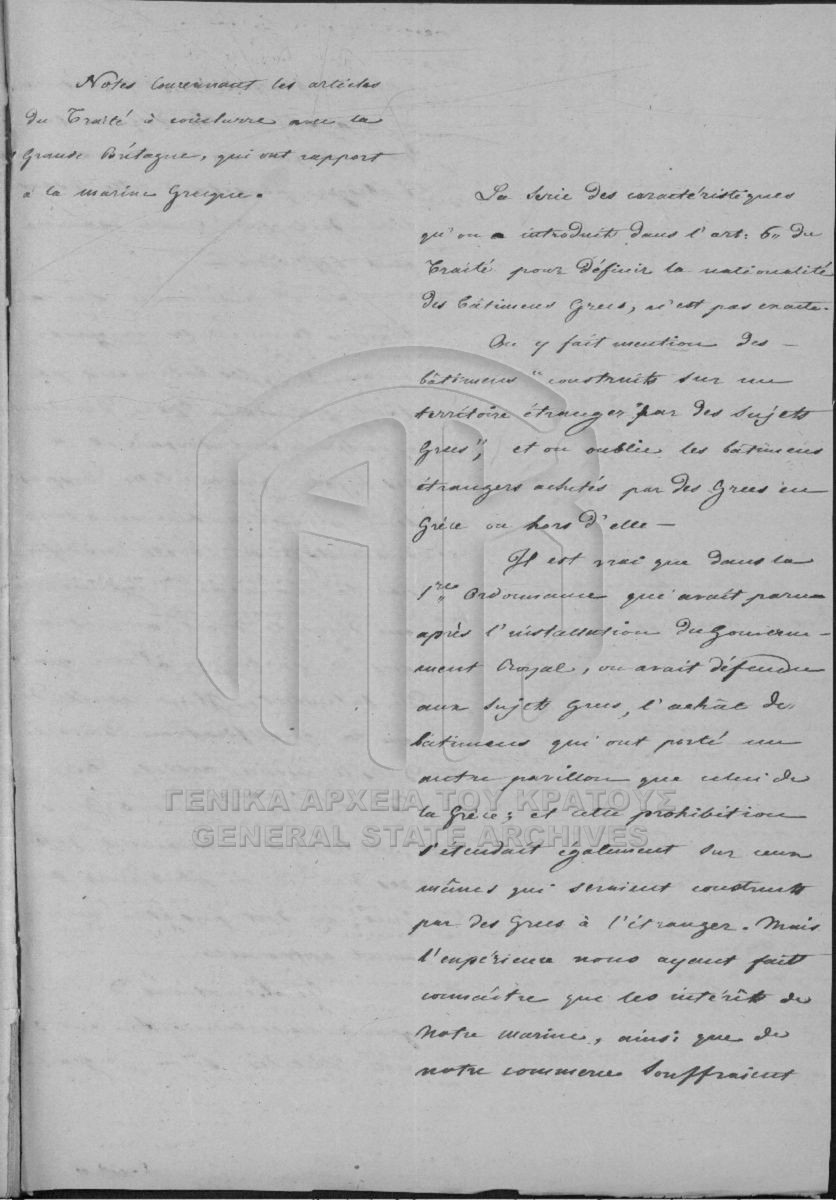 Notes concernant les articles
du Traité à conclurre avec la
Grande Brétagne, qui ont rapport
à la marine Grecque.
La serie des caractéristiques
qu'on a introduit dans l'art: 6" du
Traité pour définir la nationalité
des bâtimens Grecs, n'est pas exacte.
On y fait mention des —
bâtimens "construits sur un
territoire étranger par des sujets
Grecs", et on oublie les bâtimens
étrangers achetés par des Grecs en
Grèce ou hors d'elle —
Il est vrai que dans la
1re Ordonnance qui avait parue
après l'installation du Gouverne-
ment Royal, on avait défendu
aux sujets Grecs, l'achât de
bâtimens qui ont porté un
autre pavillon que celui de
la Grèce; et cette prohibition
s'etendait également sur ceux
mêmes qui seraient construits
par des Grecs à l'étranger. Mais
l'expérience nous ayant fait
connaître que les intérêts de
notre marine, ainsi que de
notre commerce souffraient
ΓΕΝΙΚΑ ΑΡΧΕΙΑ ΤΟΥ ΚΡΑΤΟΥΣ
GENERAL STATE ARCHIVES